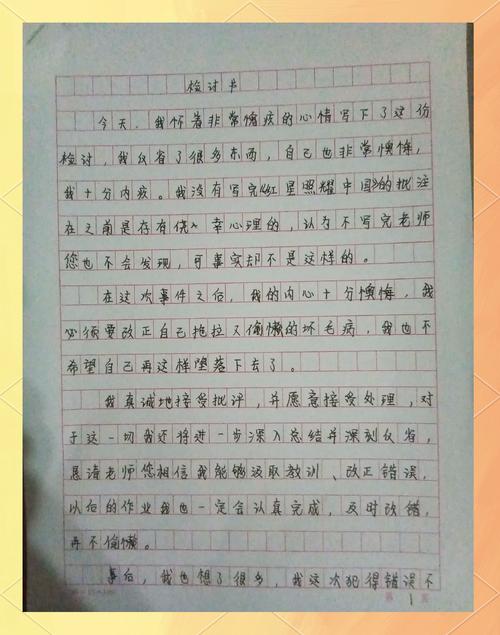 检讨书
今天，我怀着非常愧疚的心情写下了这份
检讨，我反省了很多东西，自己也非常懊悔，
我十分内疚。我没有写完《红星照耀中国》的批注
在之前是存有侥幸心理的，认为不写完老师
您也不会发现，可事实却不是这样的。
在这次事件之后，我的内心十分懊悔，我
必须要改正自己拖拉又偷懒的坏毛病，我也不
希望自己再这样堕落下去了。
我真诚地接受批评，并愿意接受处理，对
于这一切我还将进一步深入总结并深刻反省，
恳请老师您相信我能够汲取教训、改正错误，
以后的作业我也一定会认真完成，及时改错，
再不偷懒。
事后，我也想了很多，我这次犯得错误不
第 1 页